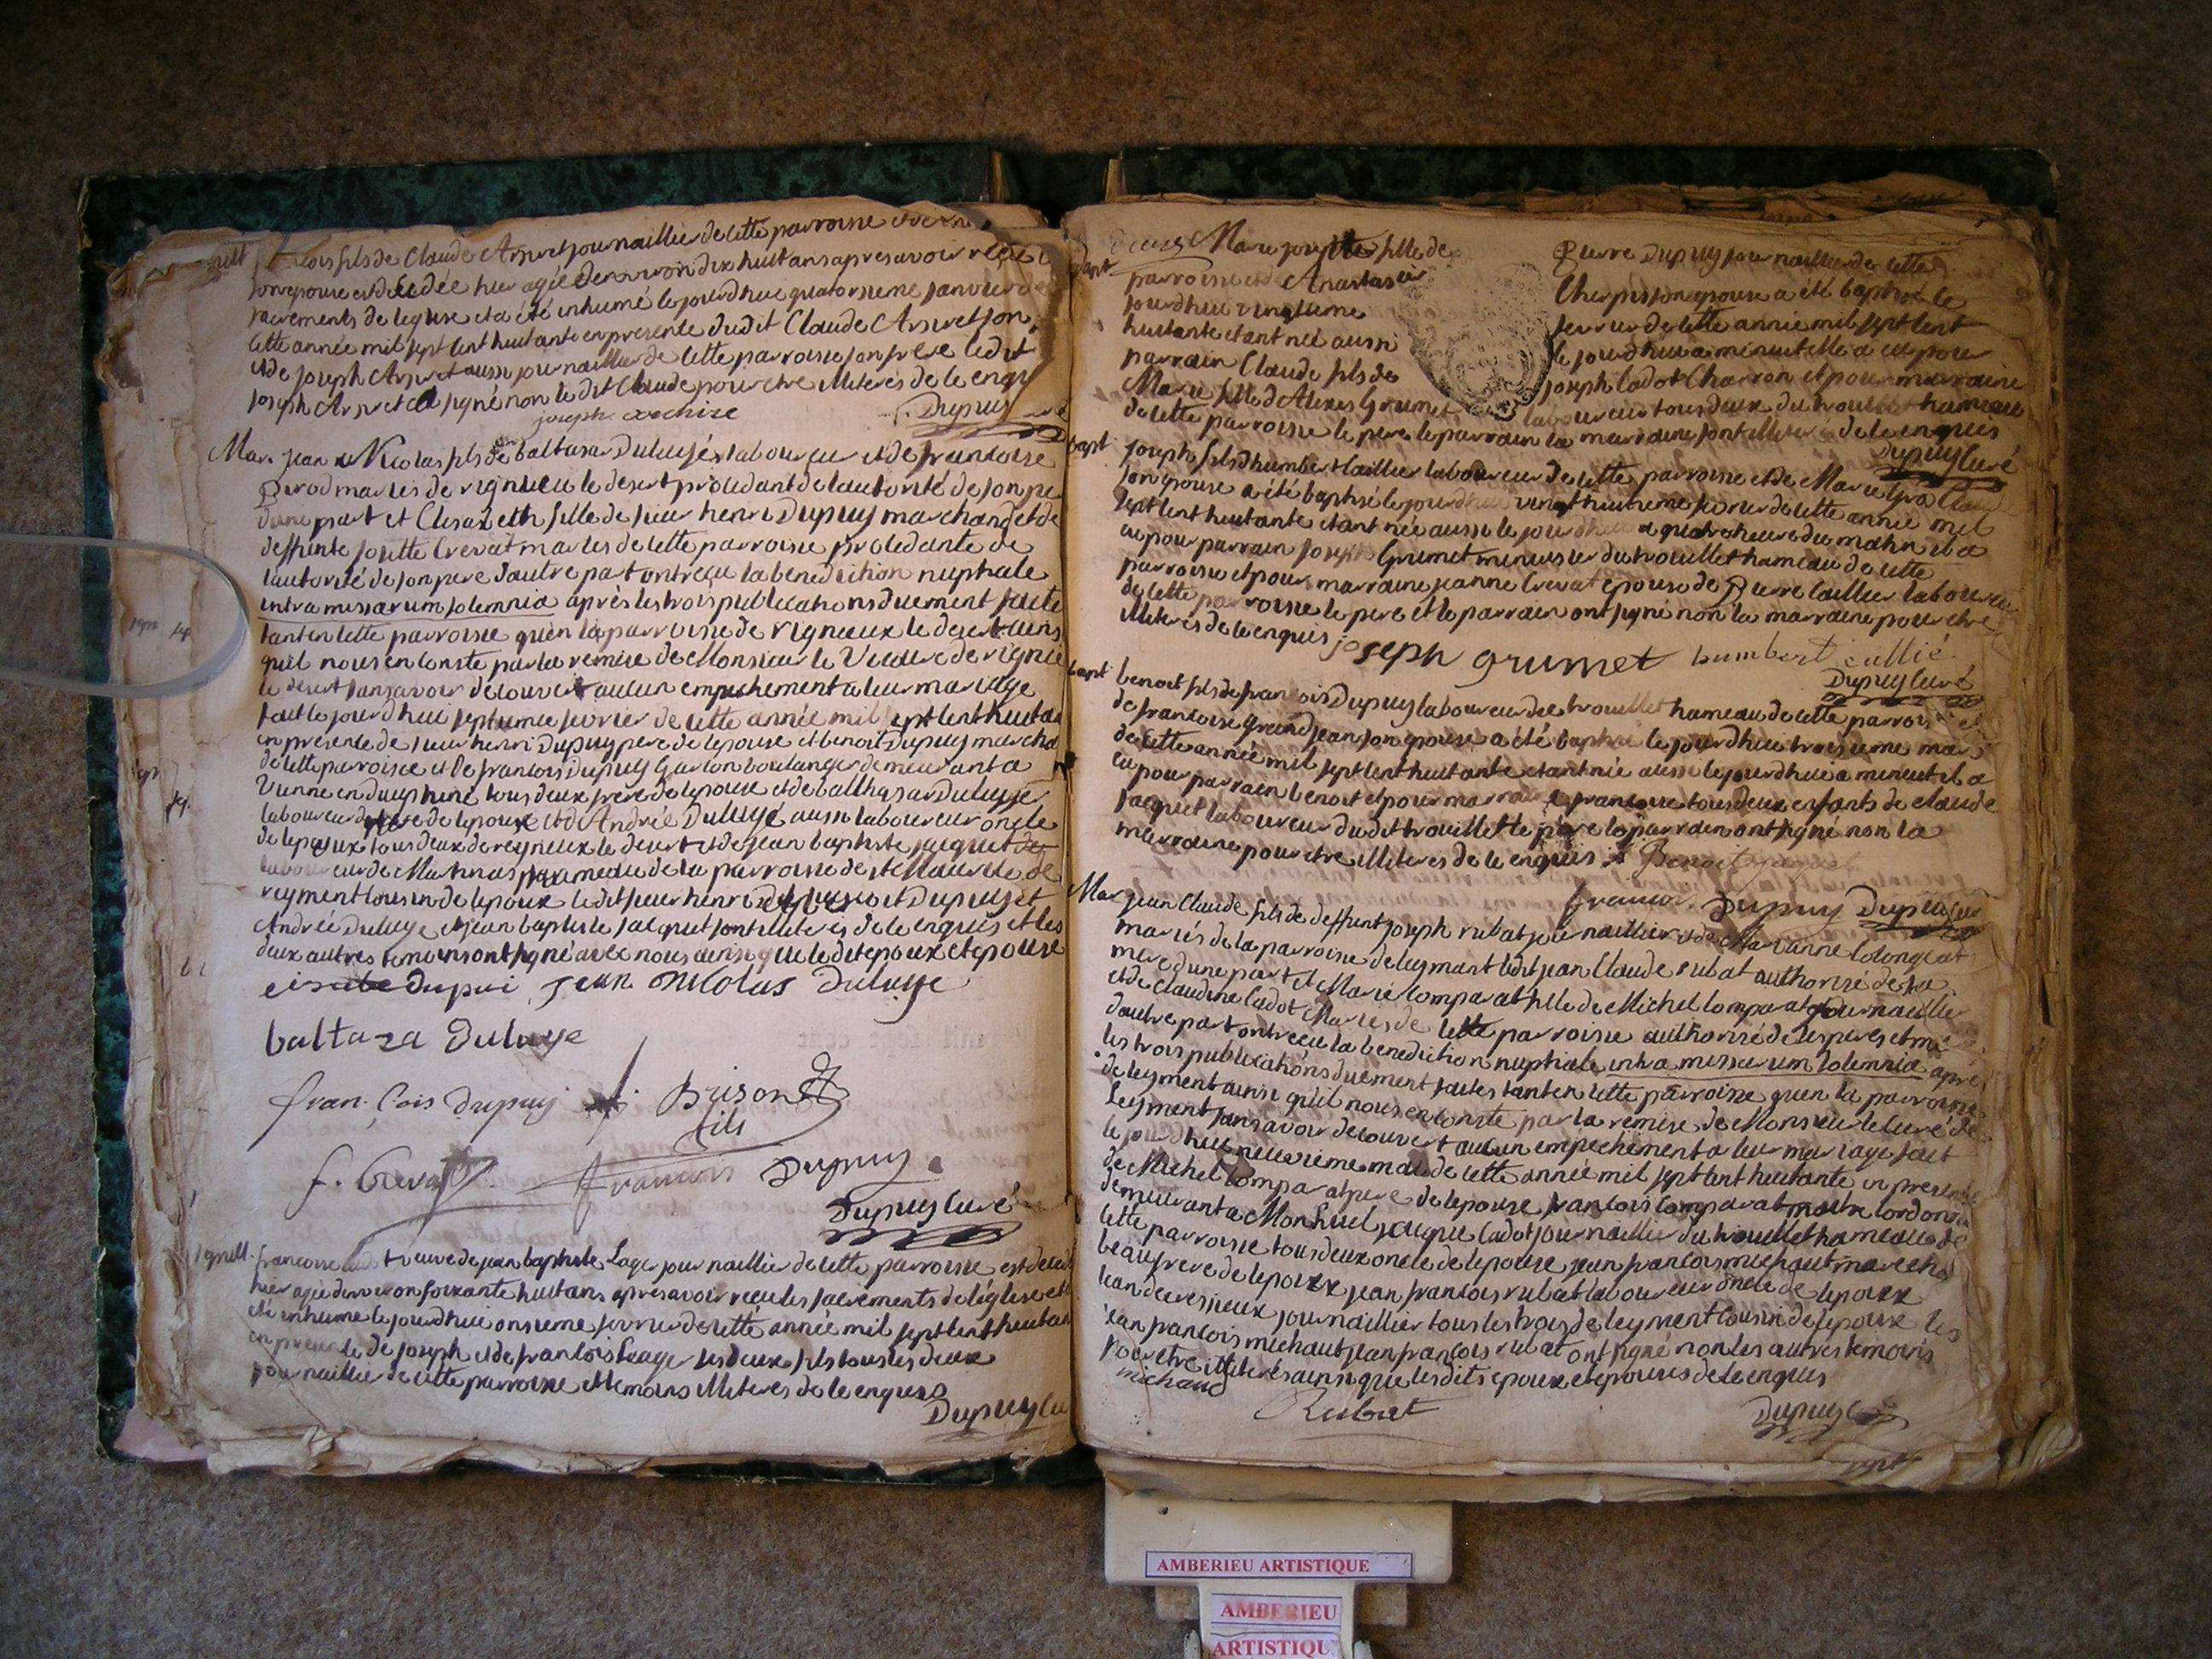 fils de Claude Arnvet journaillier de cette parroisse et de
son epouse est decedée hier agée denviron dix huit ans apres avoir reçu
sacrements de leglise et a été inhumé le jourdhui quatorsieme janvier de
cette année mil sept cent huitante en presence dudit Claude Arnvet son
et de joseph Arnvet aussi journaillier de cette parroisse son frere ledit
joseph Arnvet a signé non le dit Claude pour etre illiteres de ce enqu
joseph
Dupuy
Mar. jean Nicolas fils de baltasar Duluye laboureur et de francoise
mariés de vignieu le desert procedant de lautorité de son pe
dune part et Elisabeth fille de sieur henri Dupuy marchand et de
deffunte josette Crevat mariés de cette parroisse procedante de
lautorité de son pere dautre part ont reçu la benediction nuptiale
intra missarum solemnia après les trois publications duement faite
tant en cette parroisse quen la parroisse de vignieux le desert ains
quil nous en conste par la remise de Monsieur le Vicaire de vignie
le desert sans avoir decouvert aucun empechement a leur mariage
fait le jourdhui septieme fevrier de cette année mil sept cent huita
en presence de sieur henri Dupuy pere de lepouse et benoit Dupuy marcha
de cette parroisse et de francois Dupuy garcon boulanger demeurant a
Vienne en dauphiné tous deux frere de lepouse et de balthasar Duluye
laboureur pere de lepoux et de André Duluye aussi laboureur oncle
de lepoux tous deux de veyneux le desert et de jean baptiste jacquet
laboureur de Marhnas hameau de la parroisse de
veyment cousin de lepoux ledit sieur henri Dupuy
André Duluye et jean baptiste jacquet sont illiteres de ce enquis et les
deux autres temoins ont signé avec nous ainsi que le dit epoux et epouse
dupui jean Nicolas Duluye
baltaza Duluye
fran.cois Dupuy Brison
fils
f. Crevat francois Dupuy
Dupuy curé
francoise veuve de jean baptiste Lager journaillier de cette parroisse est deced
hier agée denviron soixante huit ans apres avoir reçu les sacrements de léglise et
été inhumé le jourdhui onsieme fevrier de cette année mil sept cent huitan
en presence de joseph et de francois Leager ses deux fils tous les deux
journaillier de cette parroisse et temoins illiteres de ce enquis
Dupuy cu
Marie josephte fille de Pierre Dupuy journaillier de cette
parroisse et d Anastasie Cherpis son epouse a été baptisé le
jourdhui vingtieme fevrier de cette année mil sept cent
huitante etant née aussi le jourdhui a minuit elle a eu pour
parrain Claude fils de joseph Cadot Charron et pour marraine
Marie fille d Alexis Grumet laboureur tous deux du trouillet hameau
de cette parroisse le pere le parrain la marraine sont illiteres de ce enquis
Dupuy curé
bapt joseph fils dhumbert Caillier laboureur de cette parroisse et de Marie
son epouse a été baptisé le jourdhui vingt huitieme fevrier de cette année mil
sept cent huitante etant née aussi le jourdhui a quatre heure du matin il a
eu pour parrain joseph Grumet menuisier du trouillet hameau de cette
parroisse et pour marraine jeanne Crevat epouse de Pierre Caillier laboureur
de cette parroisse le pere et le parrain ont signé non la marraine pour etre
illiteres de ce enquis joseph Grumet humbert callié
Dupuy curé
bapt benoit fils de francois Dupuy laboureur du trouillet hameau de cette parroisse et
de francoise grandjean son epouse a été baptisé le jourdhui troisieme mars
de cette année mil sept cent huitante etant née aussi le jourdhui a minuit il a
eu pour parrain benoit et pour marraine francoise tous deux enfants de claude
jacquet laboureur dudit trouillet le père le parrain ont signé non la
marraine pour etre illiteres de ce enquis Benoit jaquet
francois Dupuy Dupuy cur
Mar jean Claude fils de deffunt joseph rubat journaillier et de Marianne Colongeat
mariés de la parroisse de leyment ledit jean Claude rubat authorisé de sa
mere dune part et Marie comparat fille de Michel comparat journaillier
et de claudine Cadot Mariés de cette parroisse authorisé de ses peres et me
dautre part ont reçu la benediction nuptiale intra missarum solemnia apré
les trois publications duement faites tant en cette parroisse quen la parroisse
de leyment ainsi quil nous en conste par la remise de Monsieur le curé de
Leyment sans avoir decouvert aucun empechement a leur mariage fait
le jourdhui neuvieme mai de cette année mil sept cent huitante en presence
de Michel compar at pere de lepouse francois comparat maitre cordonnie
demeurant a Montluel jacque Cadot journaillier du trouillet hameau de
cette parroisse tous deux oncle de lepouse jean francois michaut marecha
beaufrere de lepoux jean francois rubat laboureur oncle de lepoux
jean journaillier tous les trois de leyment cousin de lepoux les
jean francois michaut jean francois rubat ont signé non les autres temoins
pour etre illiteres ainsi que lesdits epoux et epouses de ce enquis
michaud
Rubat Dupuy
AMBERIEU ARTISTIQUE
AMBERIEU
ARTISTIQU